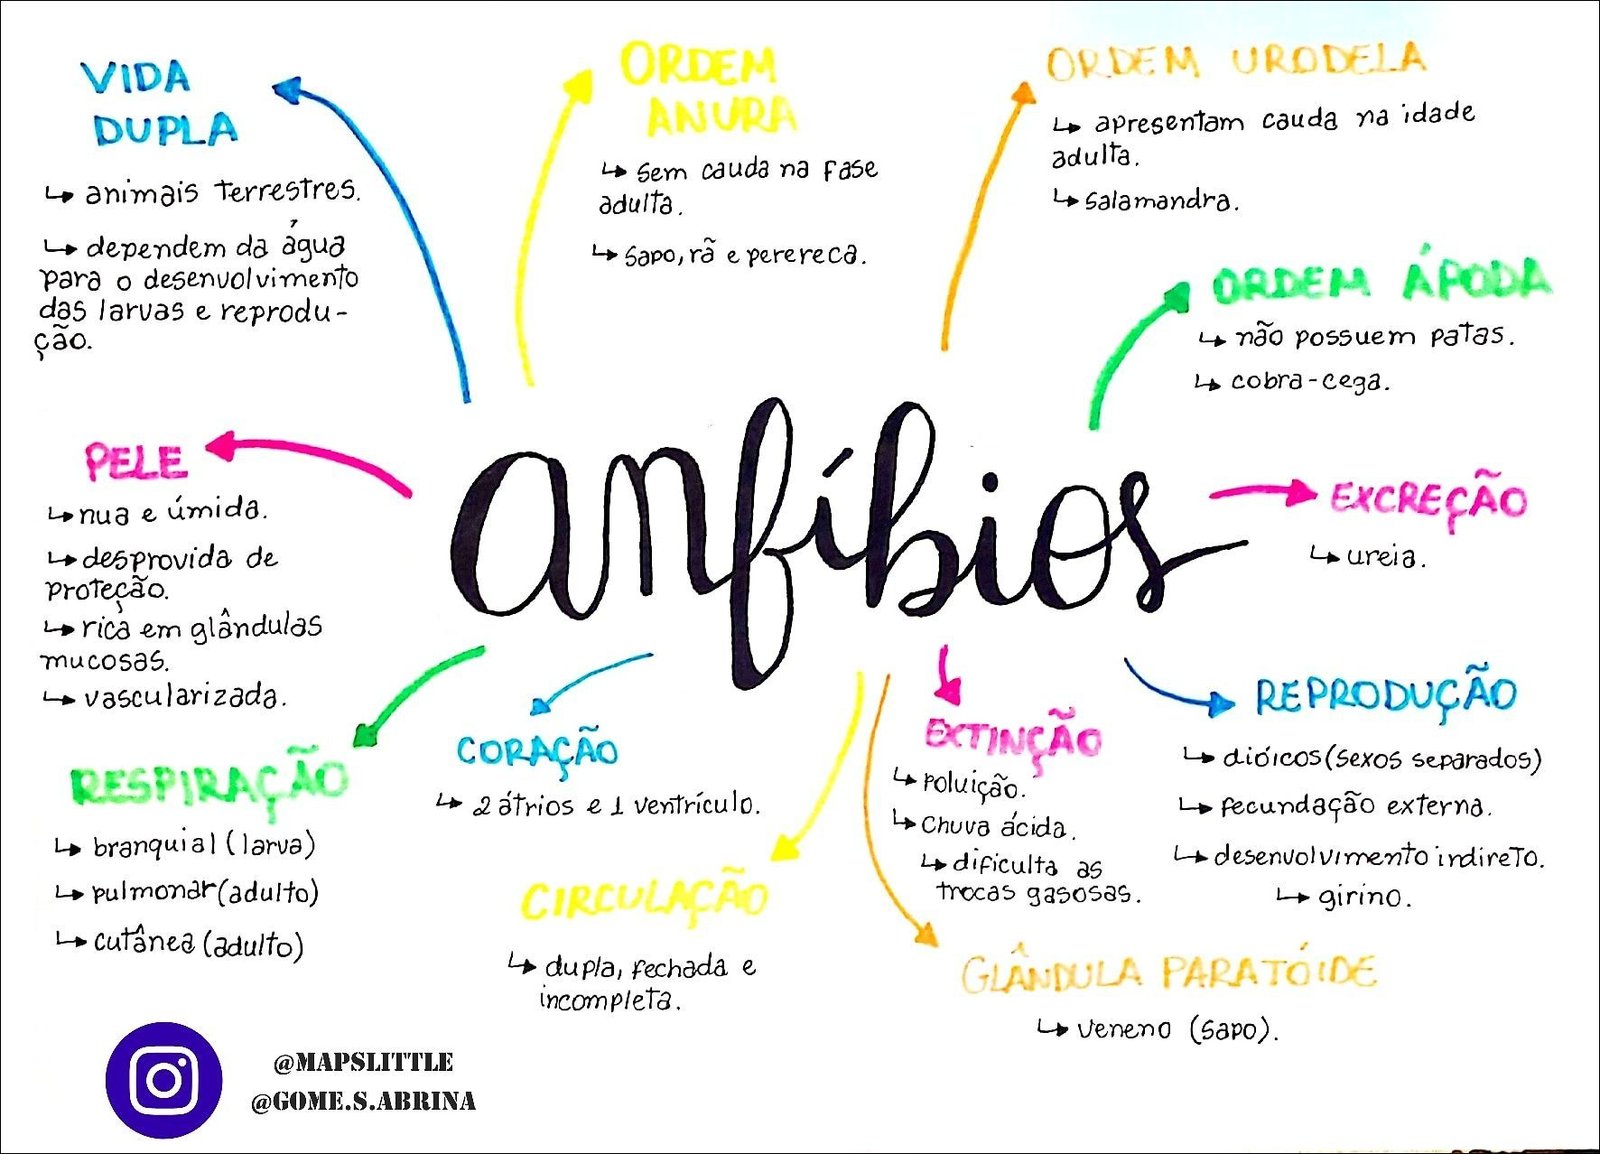 VIDA
DUPLA
↳ animais terrestres.
↳ dependem da água
para o desenvolvimento
das larvas e reprodu-
ção.
ORDEM
ANURA
↳ sem cauda na fase
adulta.
↳ sapo, rã e perereca.
ORDEM URODELA
↳ apresentam cauda na idade
adulta.
↳ salamandra.
ORDEM ÁPODA
↳ não possuem patas.
↳ cobra-cega.
PELE
↳ nua e úmida.
↳ desprovida de
proteção.
↳ rica em glândulas
mucosas.
↳ vascularizada.
anfíbios
EXCREÇÃO
↳ ureia.
RESPIRAÇÃO
↳ branquial (larva)
↳ pulmonar (adulto)
↳ cutânea (adulto)
CORAÇÃO
↳ 2 átrios e 1 ventrículo.
CIRCULAÇÃO
↳ dupla, fechada e
incompleta.
EXTINÇÃO
↳ poluição.
↳ chuva ácida.
↳ dificulta as
trocas gasosas.
REPRODUÇÃO
↳ dióicos (sexos separados)
↳ fecundação externa.
↳ desenvolvimento indireto.
↳ girino.
GLÂNDULA PARATÓIDE
↳ veneno (sapo).
@MAPSLITTLE
@GOME.S.ABRINA